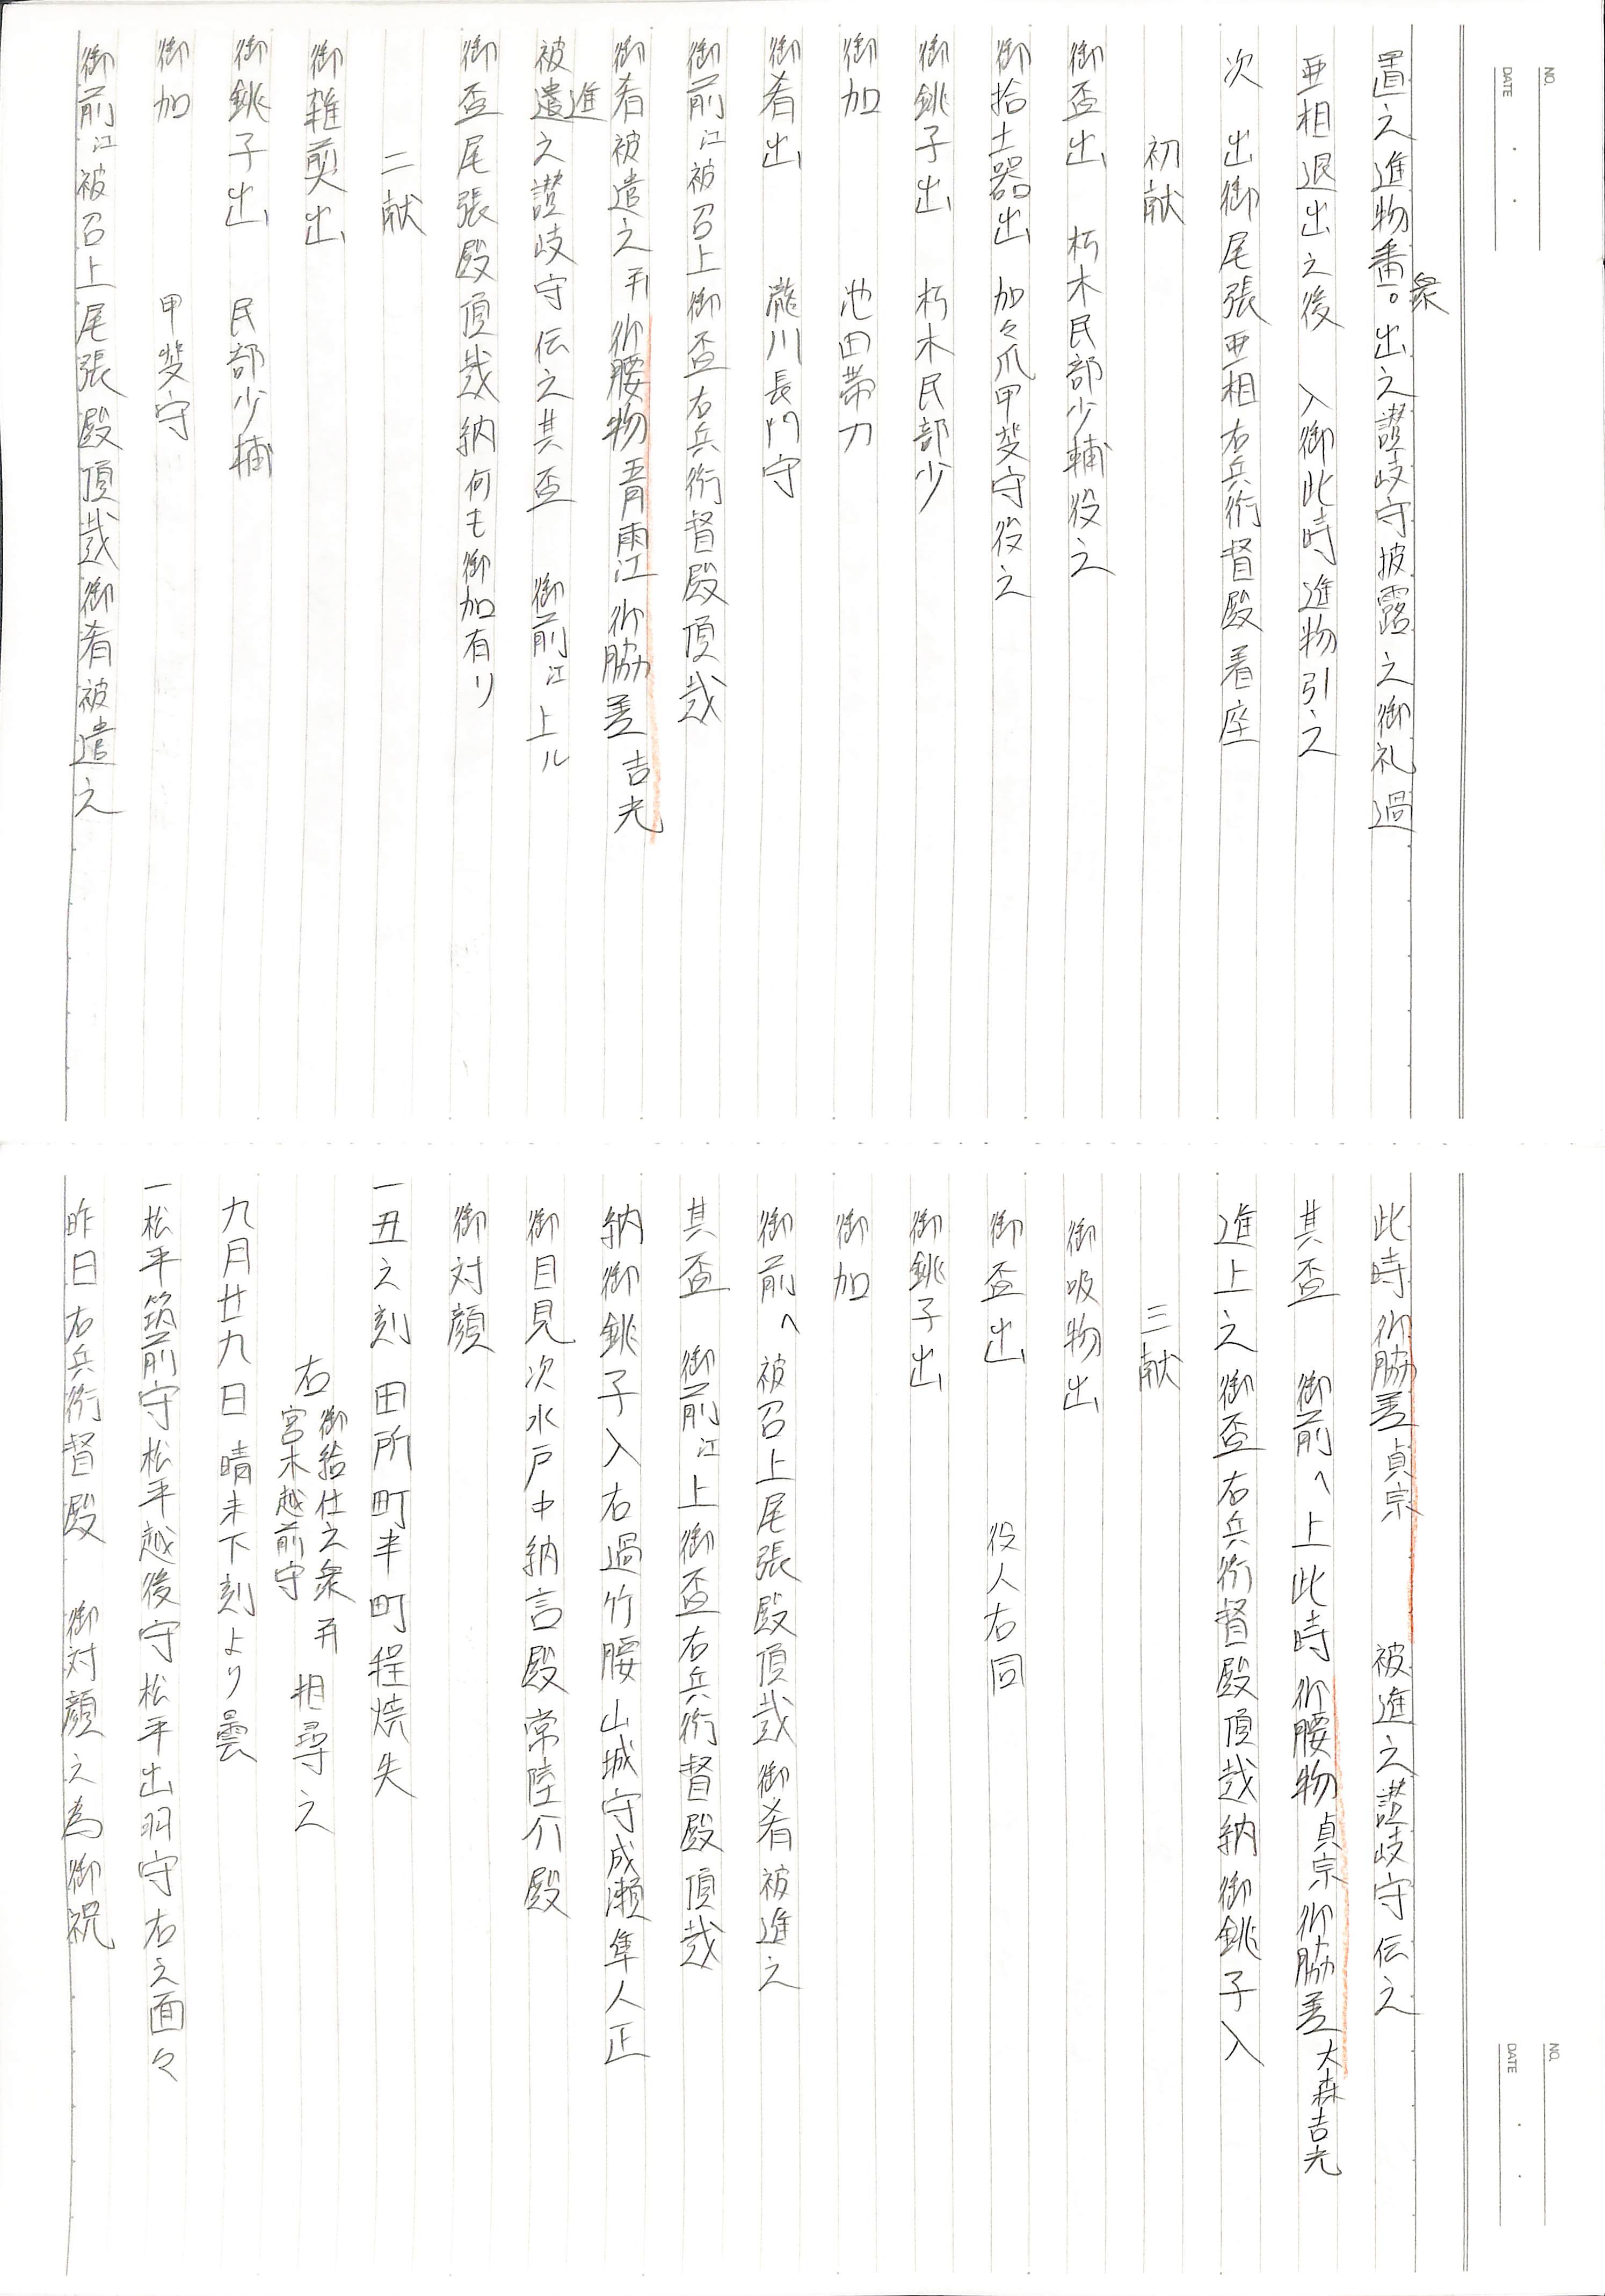 NO.
DATE
置之進物番衆。出之讃岐守披露之御礼過
亜相退出之後 入御此時進物引之
次 出御尾張亜相右兵衛督殿着座
初献
御盃出 朽木民部少輔役之
御拾土器出 加々爪甲斐守役之
御銚子出 朽木民部少
御加 池田帯刀
御肴出 瀧川長門守
御前江被召上御盃右兵衛督殿頂戴
御肴被遣之并御腰物五月雨江御脇差吉光
被遣進之讃岐守伝之其盃 御前江上ル
御盃尾張殿頂戴納何も御加有り
二献
御雑煎出
御銚子出 民部少輔
御加 甲斐守
御前江被召上尾張殿頂戴御肴被遣之
NO.
DATE
此時御脇差貞宗 被進之讃岐守伝之
其盃 御前へ上此時御腰物貞宗御脇差大森吉光
進上之御盃右兵衛督殿頂戴納御銚子入
三献
御吸物出
御盃出 役人右同
御銚子出
御加
御前へ被召上尾張殿頂戴御肴被進之
其盃 御前江上御盃右兵衛督殿頂戴
納御銚子入右過竹腰山城守成瀬隼人正
御目見次水戸中納言殿常陸介殿
御対顔
一丑之刻田所町半町程焼失
右御給仕之衆并宮木越前守相尋之
九月廿九日晴未下刻より曇
一松平筑前守松平越後守松平出羽守右之面々
昨日右兵衛督殿 御対顔之為御祝